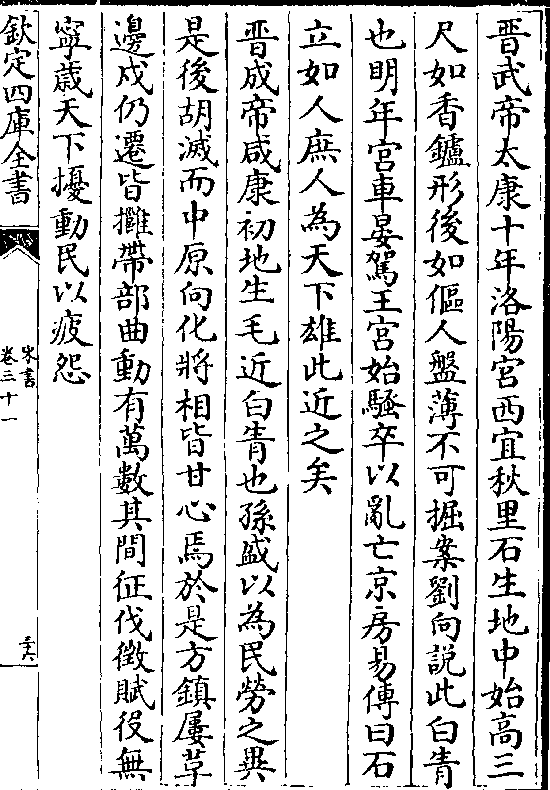 晋武帝太康十年洛陽宫西宜秋里石生地中始髙三
尺如香鑪形後如傴人盤薄不可掘案劉向説此白眚
也明年宫車晏駕王宫始騷卒以亂亡京房易傳曰石
立如人庶人為天下雄此近之矣
晋成帝咸康初地生毛近白眚也孫盛以為民勞之異
是後胡滅而中原向化將相皆甘心焉於是方鎮屢革
邊戍仍遷皆擁帶部曲動有萬數其間征伐徴賦役無
寧歳天下擾動民以疲怨
欽定四庫全書
宋書
卷三十一
三六